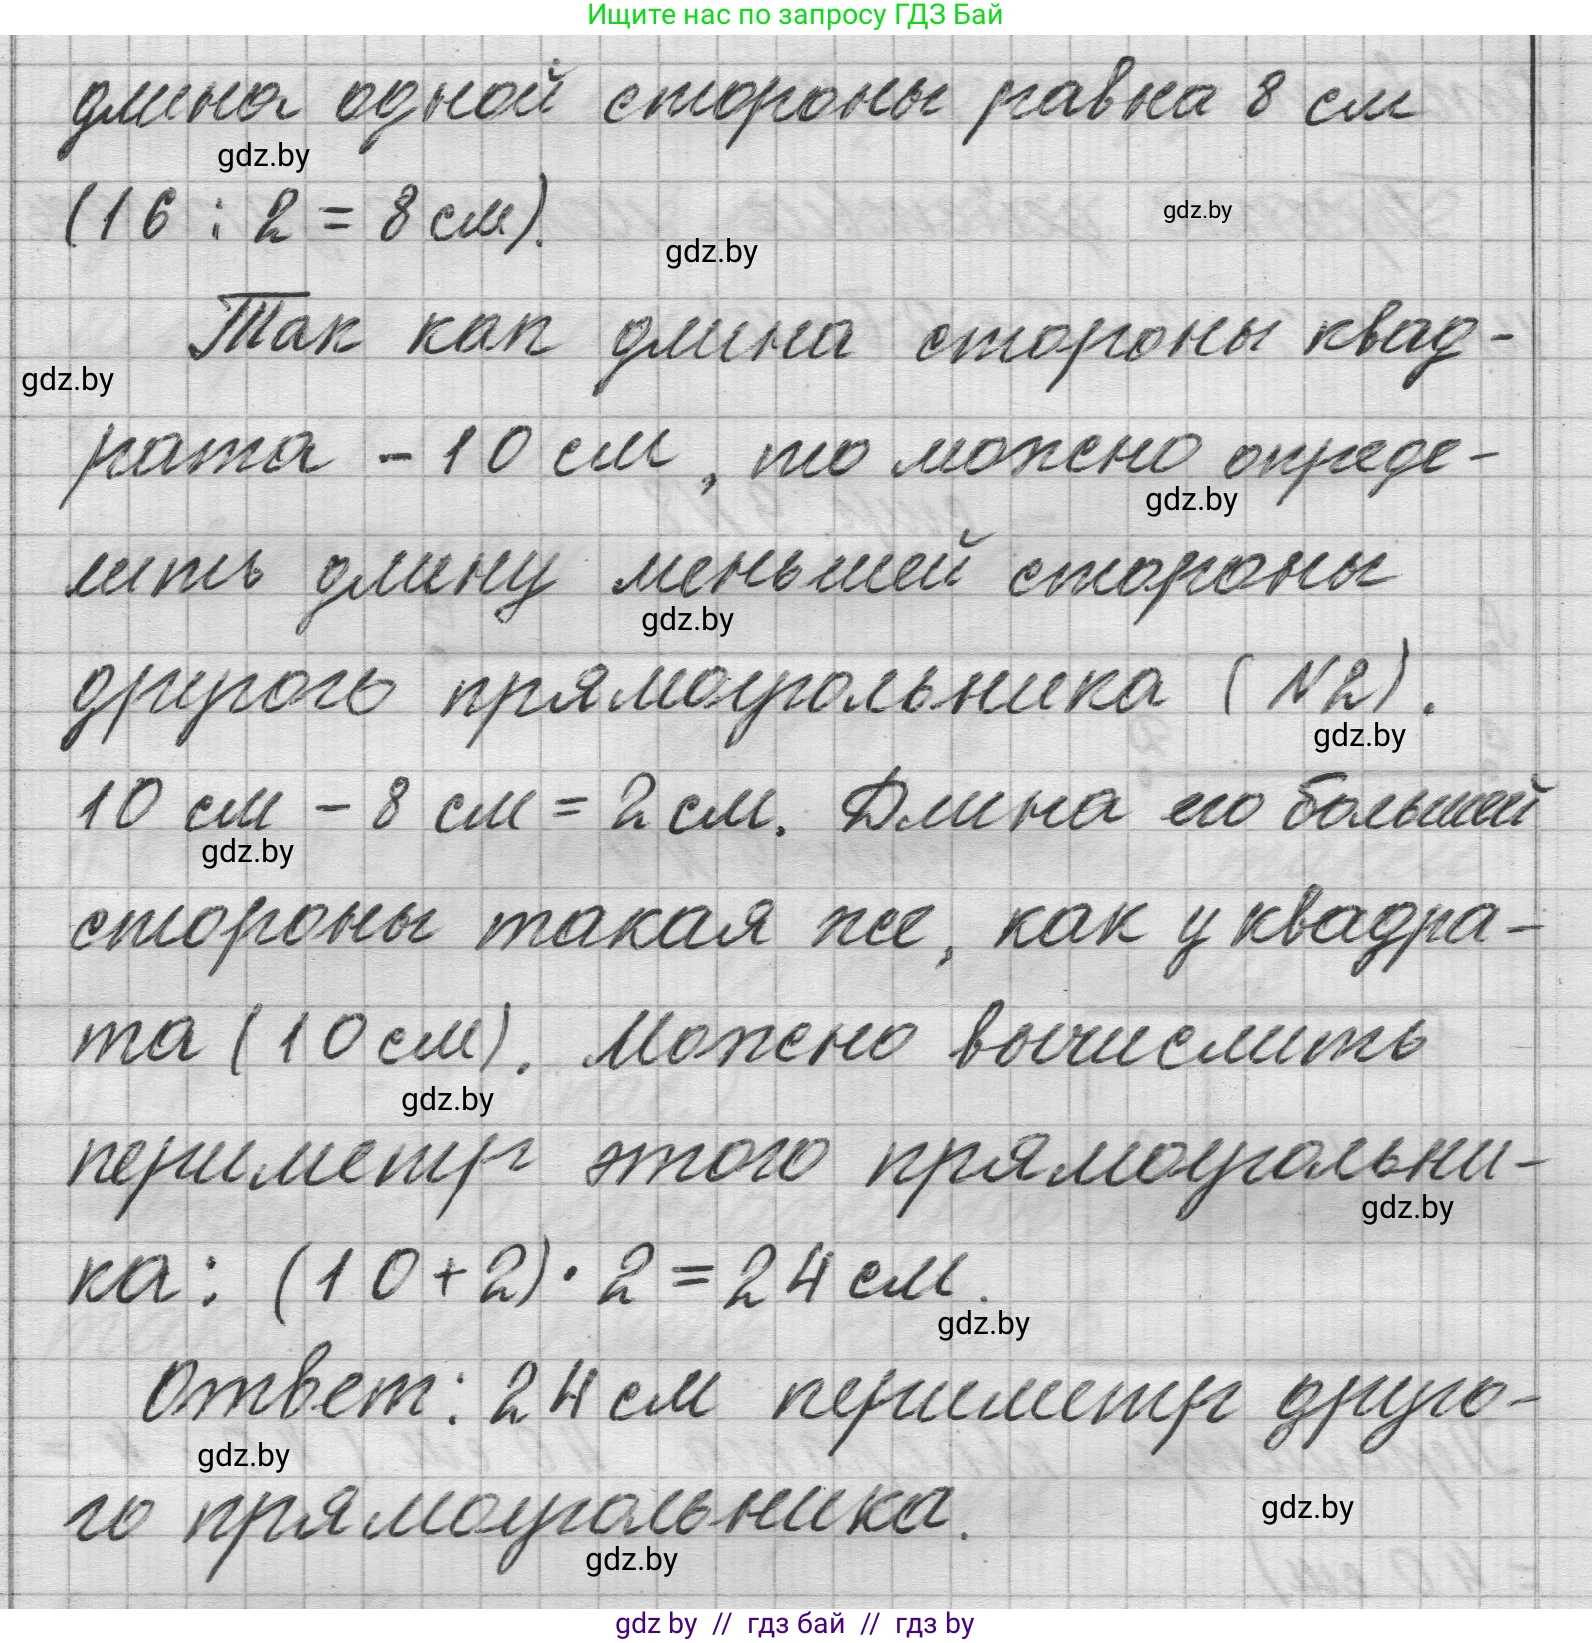 Ищите нас по запросу ГДЗ Бай
длина одной стороны равна 8 см
gdz.by
(16 : 2 = 8 см).
gdz.by
gdz.by
Так как длина стороны квад-
gdz.by
рата - 10 см, то можно опреде-
gdz.by
лить длину меньшей стороны
gdz.by
другого прямоугольника (N2).
gdz.by
10 см - 8 см = 2 см. Длина его большей
gdz.by
стороны такая же, как у квадра-
та (10 см). Можно вычислить
gdz.by
периметр этого прямоугольни-
gdz.by
ка: (10+2)·2=24 см.
gdz.by
Ответ: 24 см периметр друго-
gdz.by
го прямоугольника.
gdz.by
gdz.by
gdz by // гдз бай // гдз by